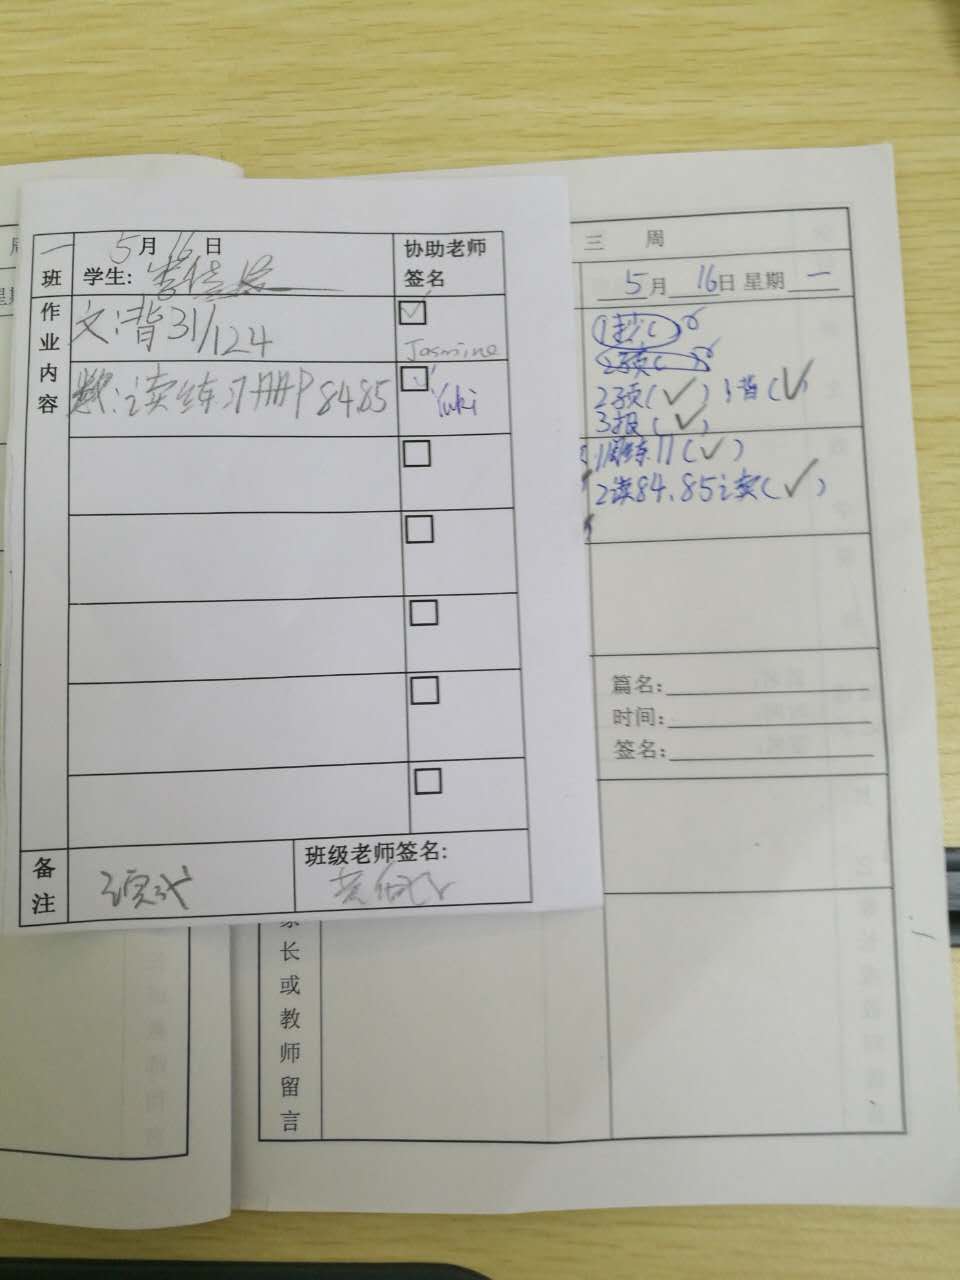 一班
5月16日
学生:
协助老师
签名
作业内容
文:背31/124
Jasmine
数:读练习册P84.85
Yuki
备注
班级老师签名:
周
三 周
5月16日 星期一
1抄(
2预(
2预(✓) 1背(✓)
3报(✓)
1周练11(✓)
2读84、85读(✓)
篇名:
时间:
签名:
家长或教师留言